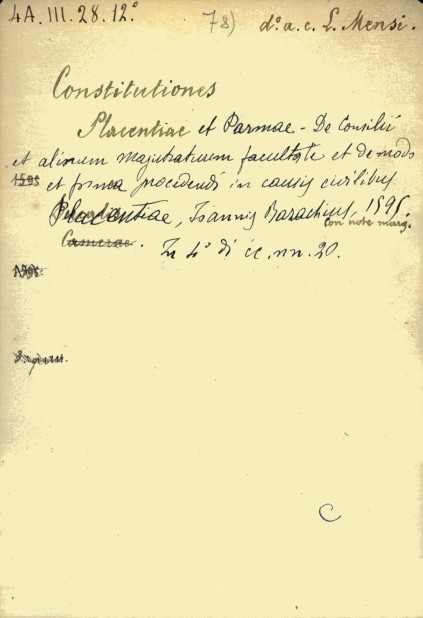 4A. III. 28. 12.° 78) d.° a. c. L. Mensi.
Constitutiones
Placentiae et Parmae - De Consilii
et aliorum magistratuum facultate et de modo
1595 et forma procedendi in causis civilibus
Placentiae, Ioannis Bazachius, 1595.
con note marg.
Camerae. In 4° di cc. nn. 20.
1595.
C